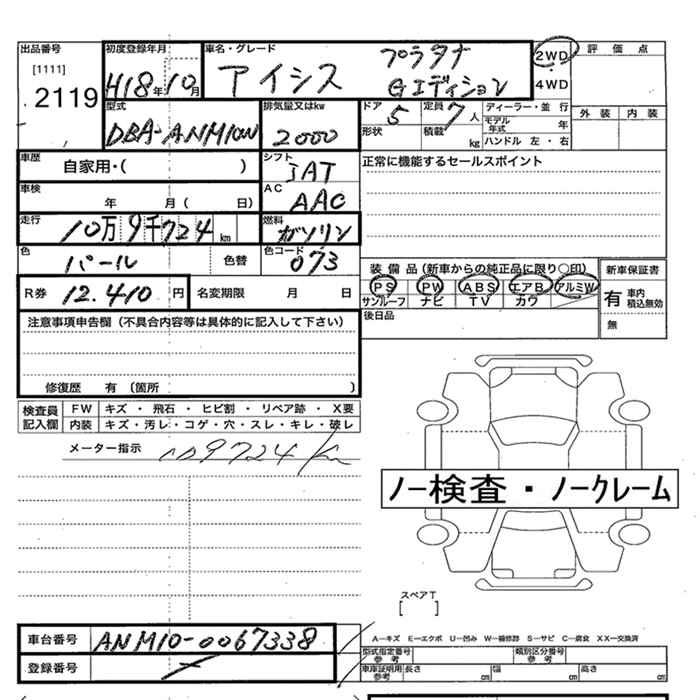 出品番号 初度登録年月 車名・グレード プラタナ 2WD 評価点
[1111] 2119 H18年10月 アイシス Gエディション 4WD
型式 排気量又はkw ドア 5 定員 7人 ディーラー・並行 外装 内装
DBA-ANM10W 2000 形状 積載 kg モデル年式 年
ハンドル 左・右
車歴 自家用・( ) シフト IAT 正常に機能するセールスポイント
車検 年 月( 日) AC AAC
走行 10万9千724km 燃料 ガソリン
色 パール 色替 色コード 073
装備品(新車からの純正品に限り○印) 新車保証書
R券 12.410円 名変期限 月 日 PS PW ABS エアB アルミW 有 車内積込無効
サンルーフ ナビ TV カワ
注意事項申告欄(不具合内容等は具体的に記入して下さい) 後日品 無
修復歴 有(箇所 )
検査員記入欄 FW キズ・飛石・ヒビ割・リペア跡・X要
内装 キズ・汚レ・コゲ・穴・スレ・キレ・破レ
メーター指示 109724km
ノー検査・ノークレーム
スペアT
[ ]
車台番号 ANM10-0067338 A-キズ E-エクボ U-凹み W-補修跡 S-サビ C-腐食 XX-交換済
登録番号 型式指定番号 参考 類別区分番号 参考
車庫証明用 参考 長さ cm 幅 cm 高さ cm